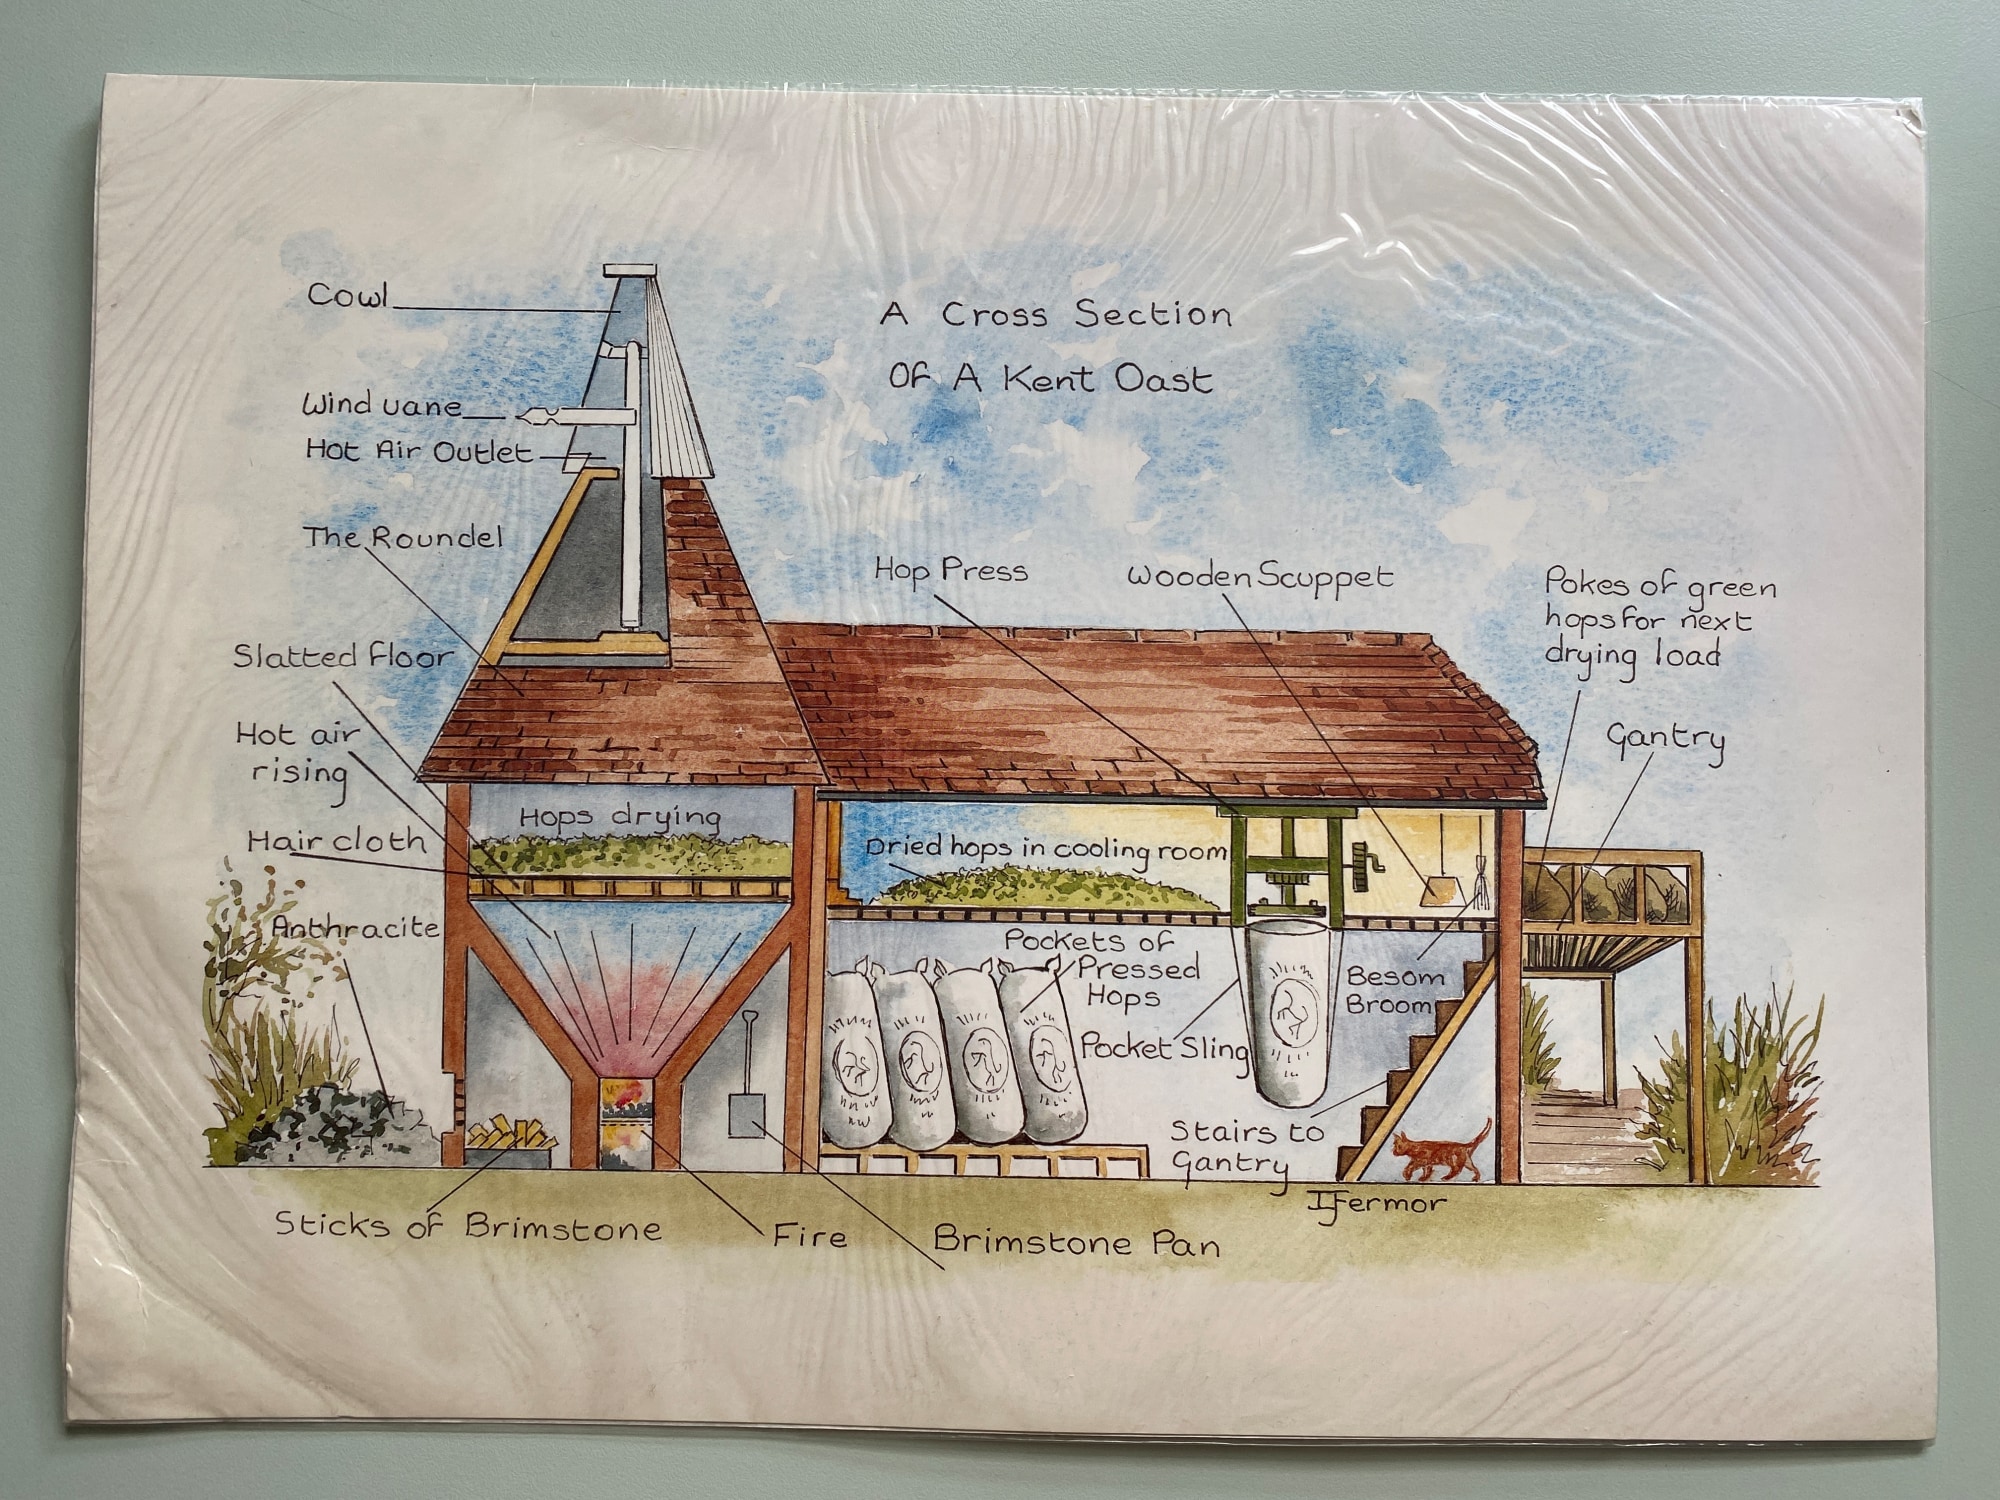 A Cross Section
Of A Kent Oast
Cowl
Wind vane
Hot Air Outlet
The Roundel
Slatted floor
Hot air
rising
Hair cloth
Anthracite
Hops drying
Hop Press
Wooden Scuppet
Pokes of green
hops for next
drying load
Gantry
Dried hops in cooling room
Pockets of
Pressed
Hops
Pocket Sling
Besom
Broom
Stairs to
Gantry
IFermor
Sticks of Brimstone
Fire
Brimstone Pan